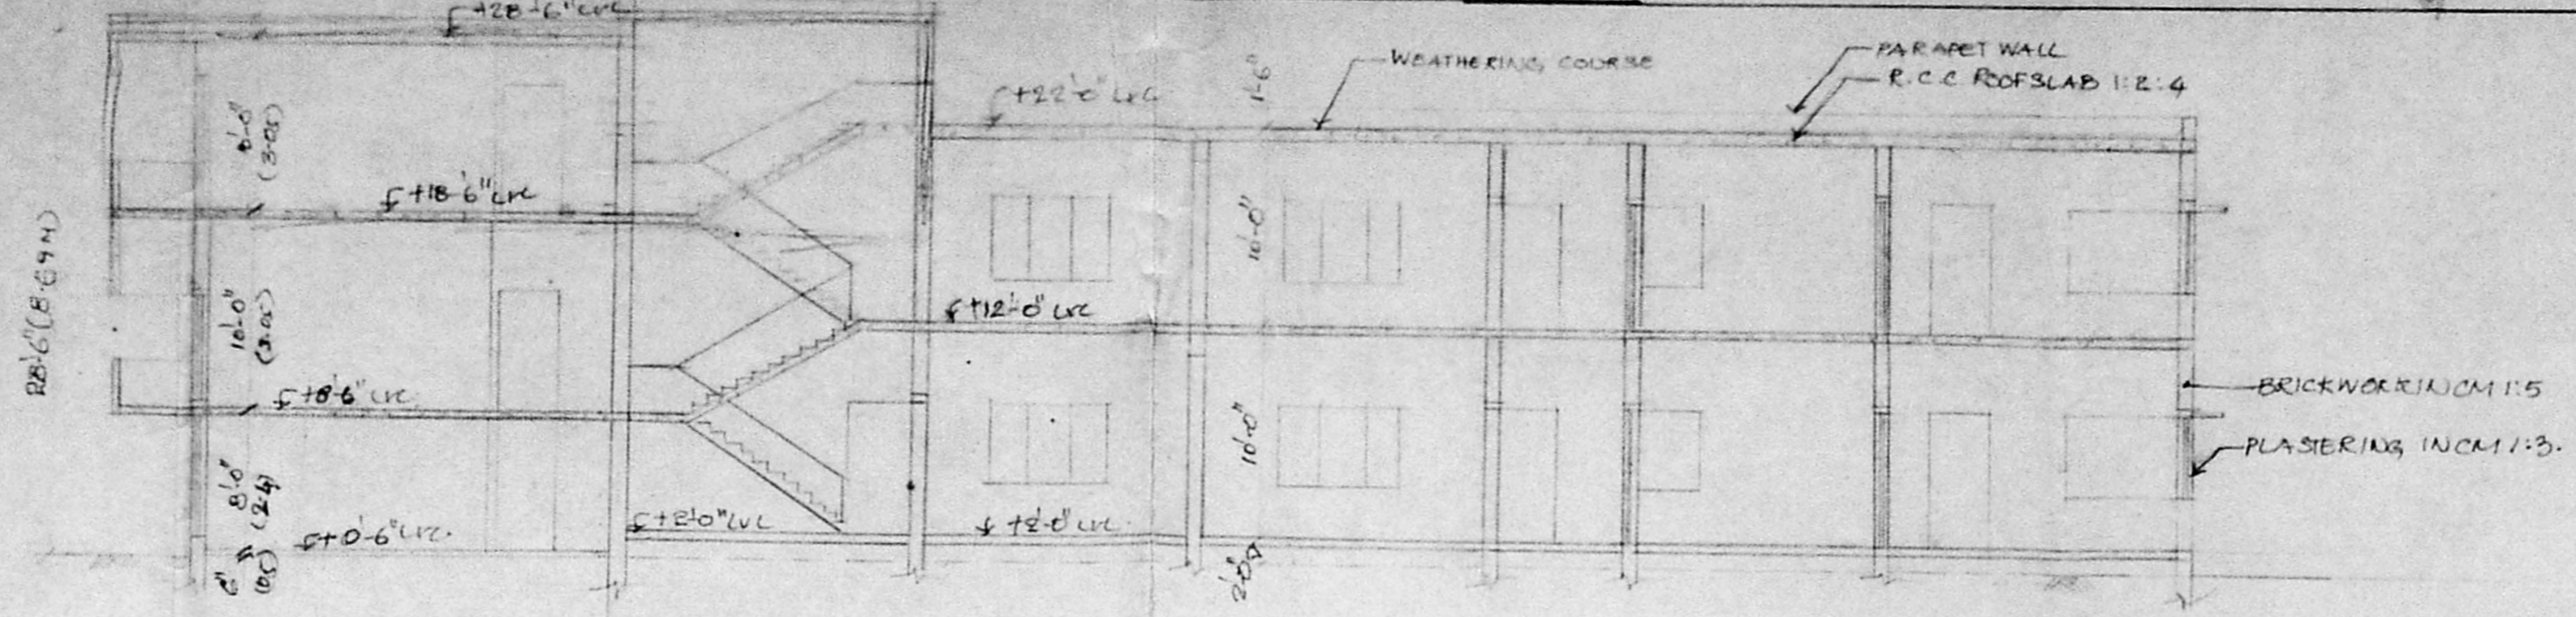 +28'-6" LVL
WEATHERING COURSE
1'-6"
PARAPET WALL
R.C.C ROOF SLAB 1:2:4
+22'-0" LVL
(3.05)
+18'-6" LVL
10'-0"
28'-6" (8.69 M)
10'-0"
(3.05)
+12'-0" LVL
+8'-6" LVL
BRICKWORK IN CM 1:5
10'-0"
PLASTERING IN CM 1:3.
8'-0"
(2.4)
+0'-6" LVL.
+2'-0" LVL
+2'-0" LVL.
6"
2'-0"